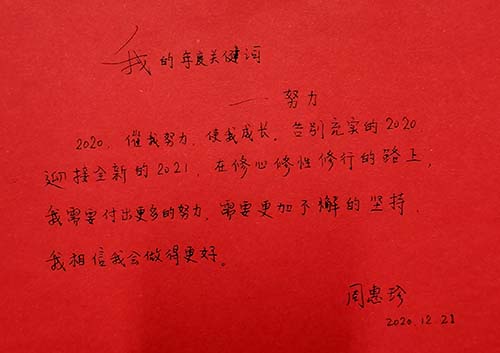 我的年度关键词
——努力
2020，催我努力，使我成长。告别充实的2020
迎接全新的2021，在修心修性修行的路上，
我需要付出更多的努力，需要更加不懈的坚持，
我相信我会做得更好。
周惠珍
2020.12.28